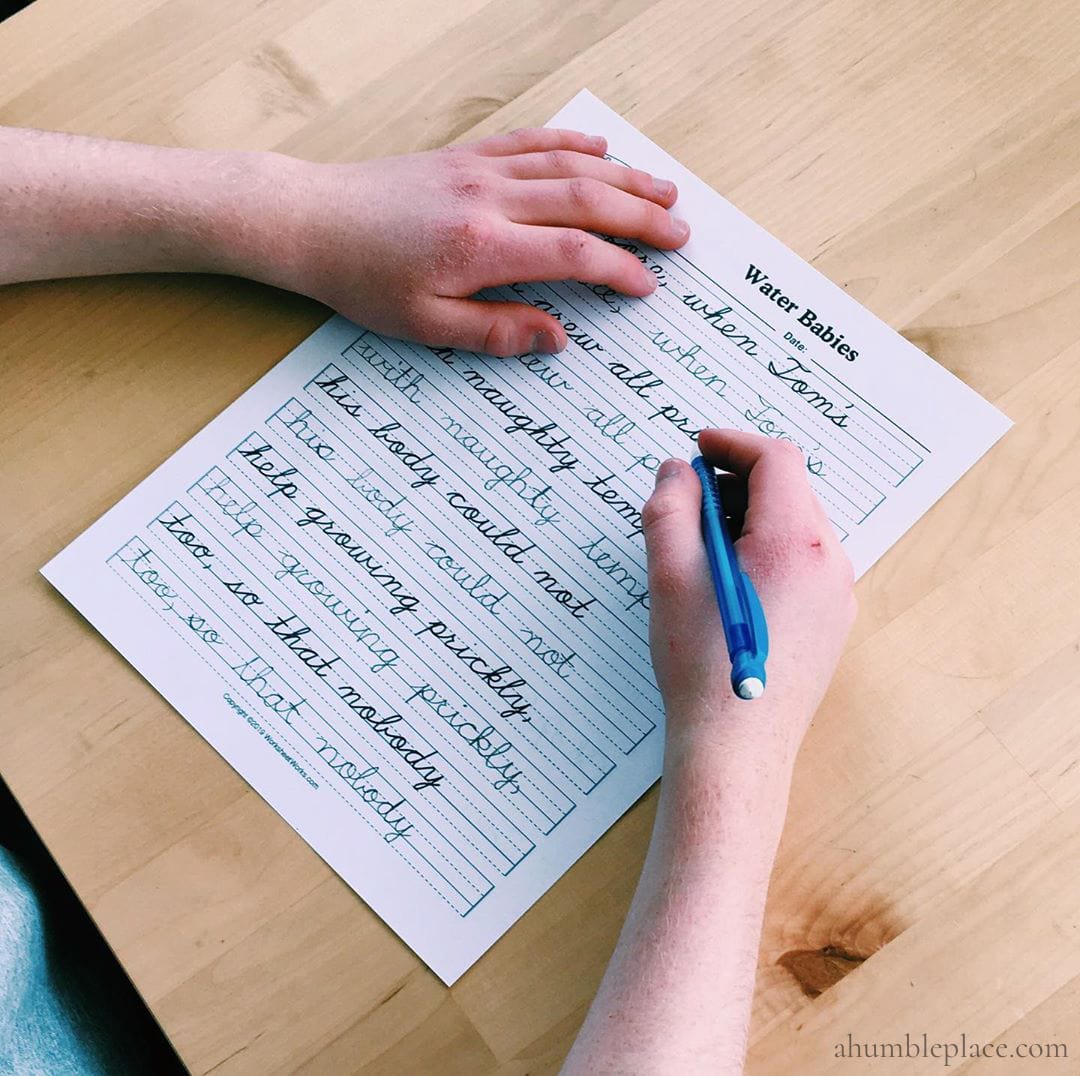 Water Babies
Date:
when Tom's
when Tom's
grew all
all
naughty
with naughty
his body could not
his body could not
help growing prickly,
help growing prickly,
too, so that nobody
too, so that nobody
Copyright ©2019 WorksheetWorks.com
ahumbleplace.com